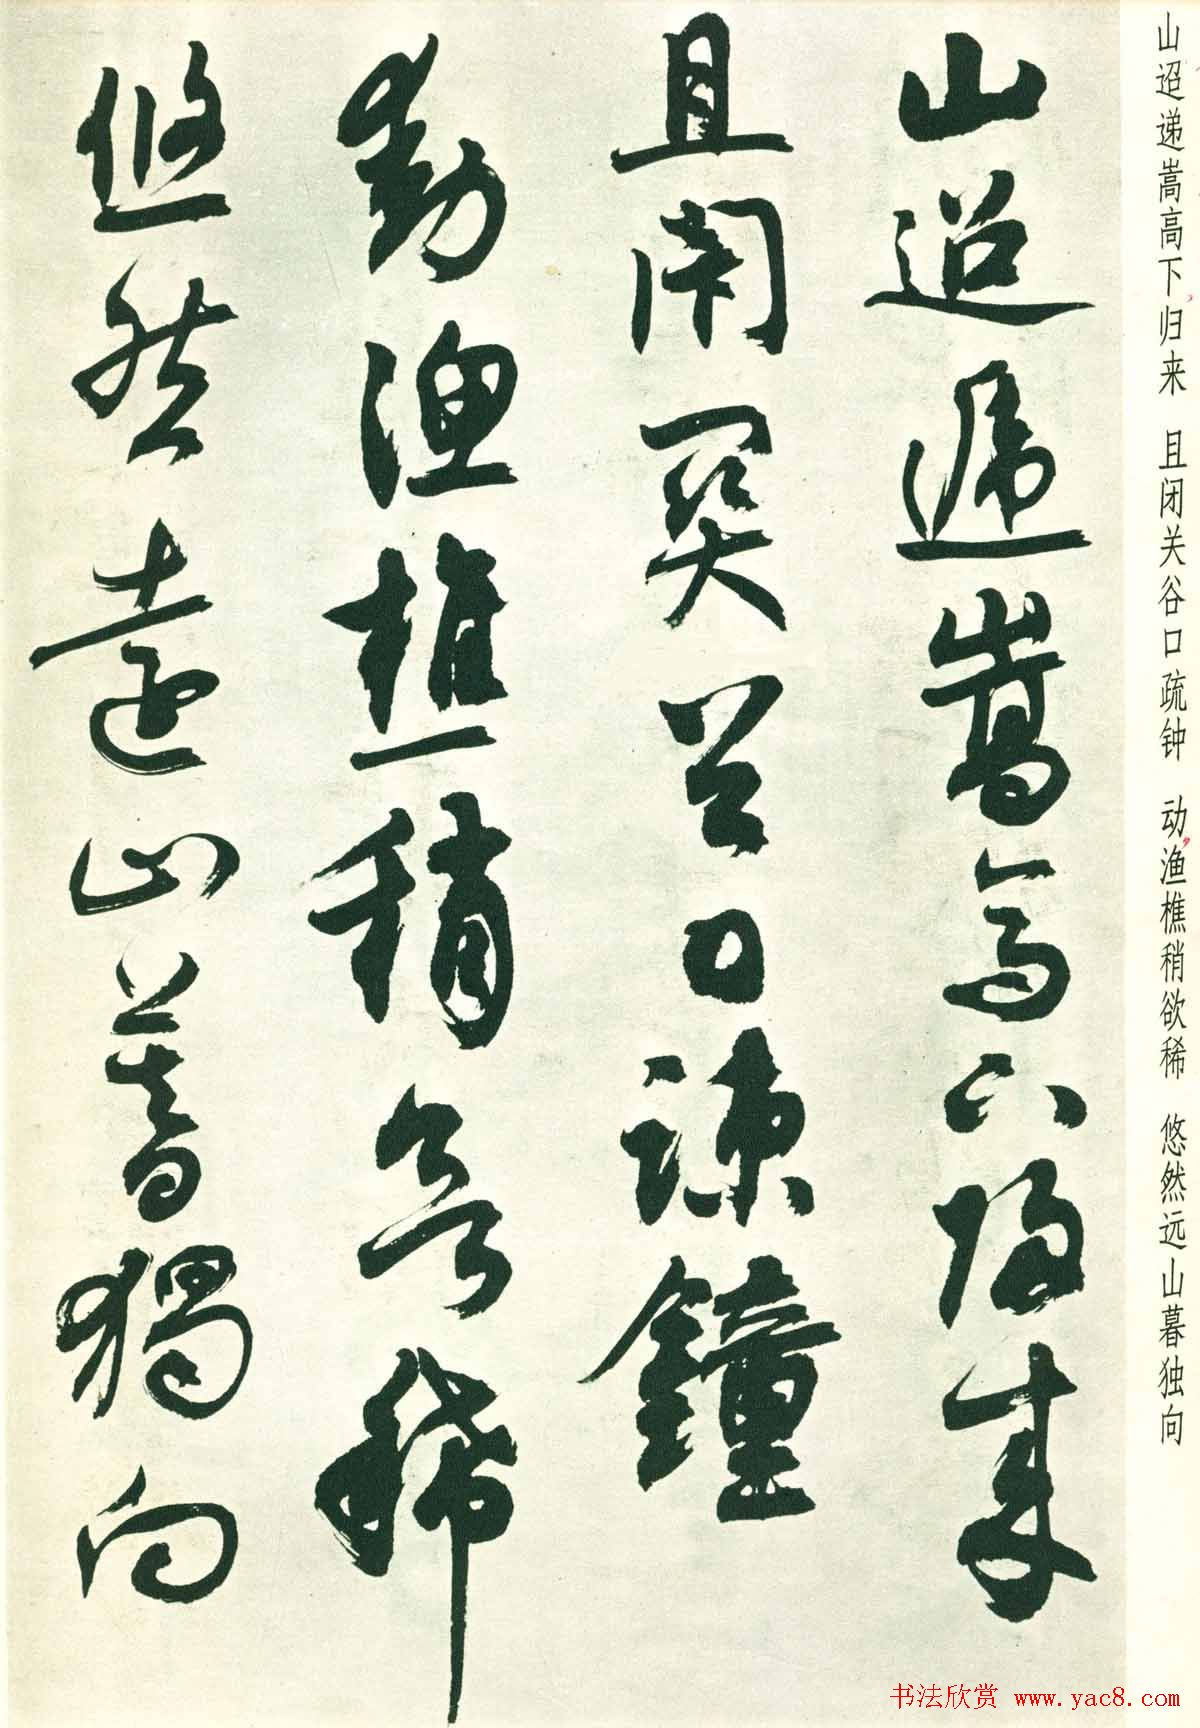 山迢遞嵩高下歸来
且閇關谷口疎鐘
動漁樵稍欲稀
悠然遠山暮獨向
山迢递嵩高下，归来 且闭关谷口疏钟 动，渔樵稍欲稀 悠然远山暮独向
书法欣赏 www.yac8.com